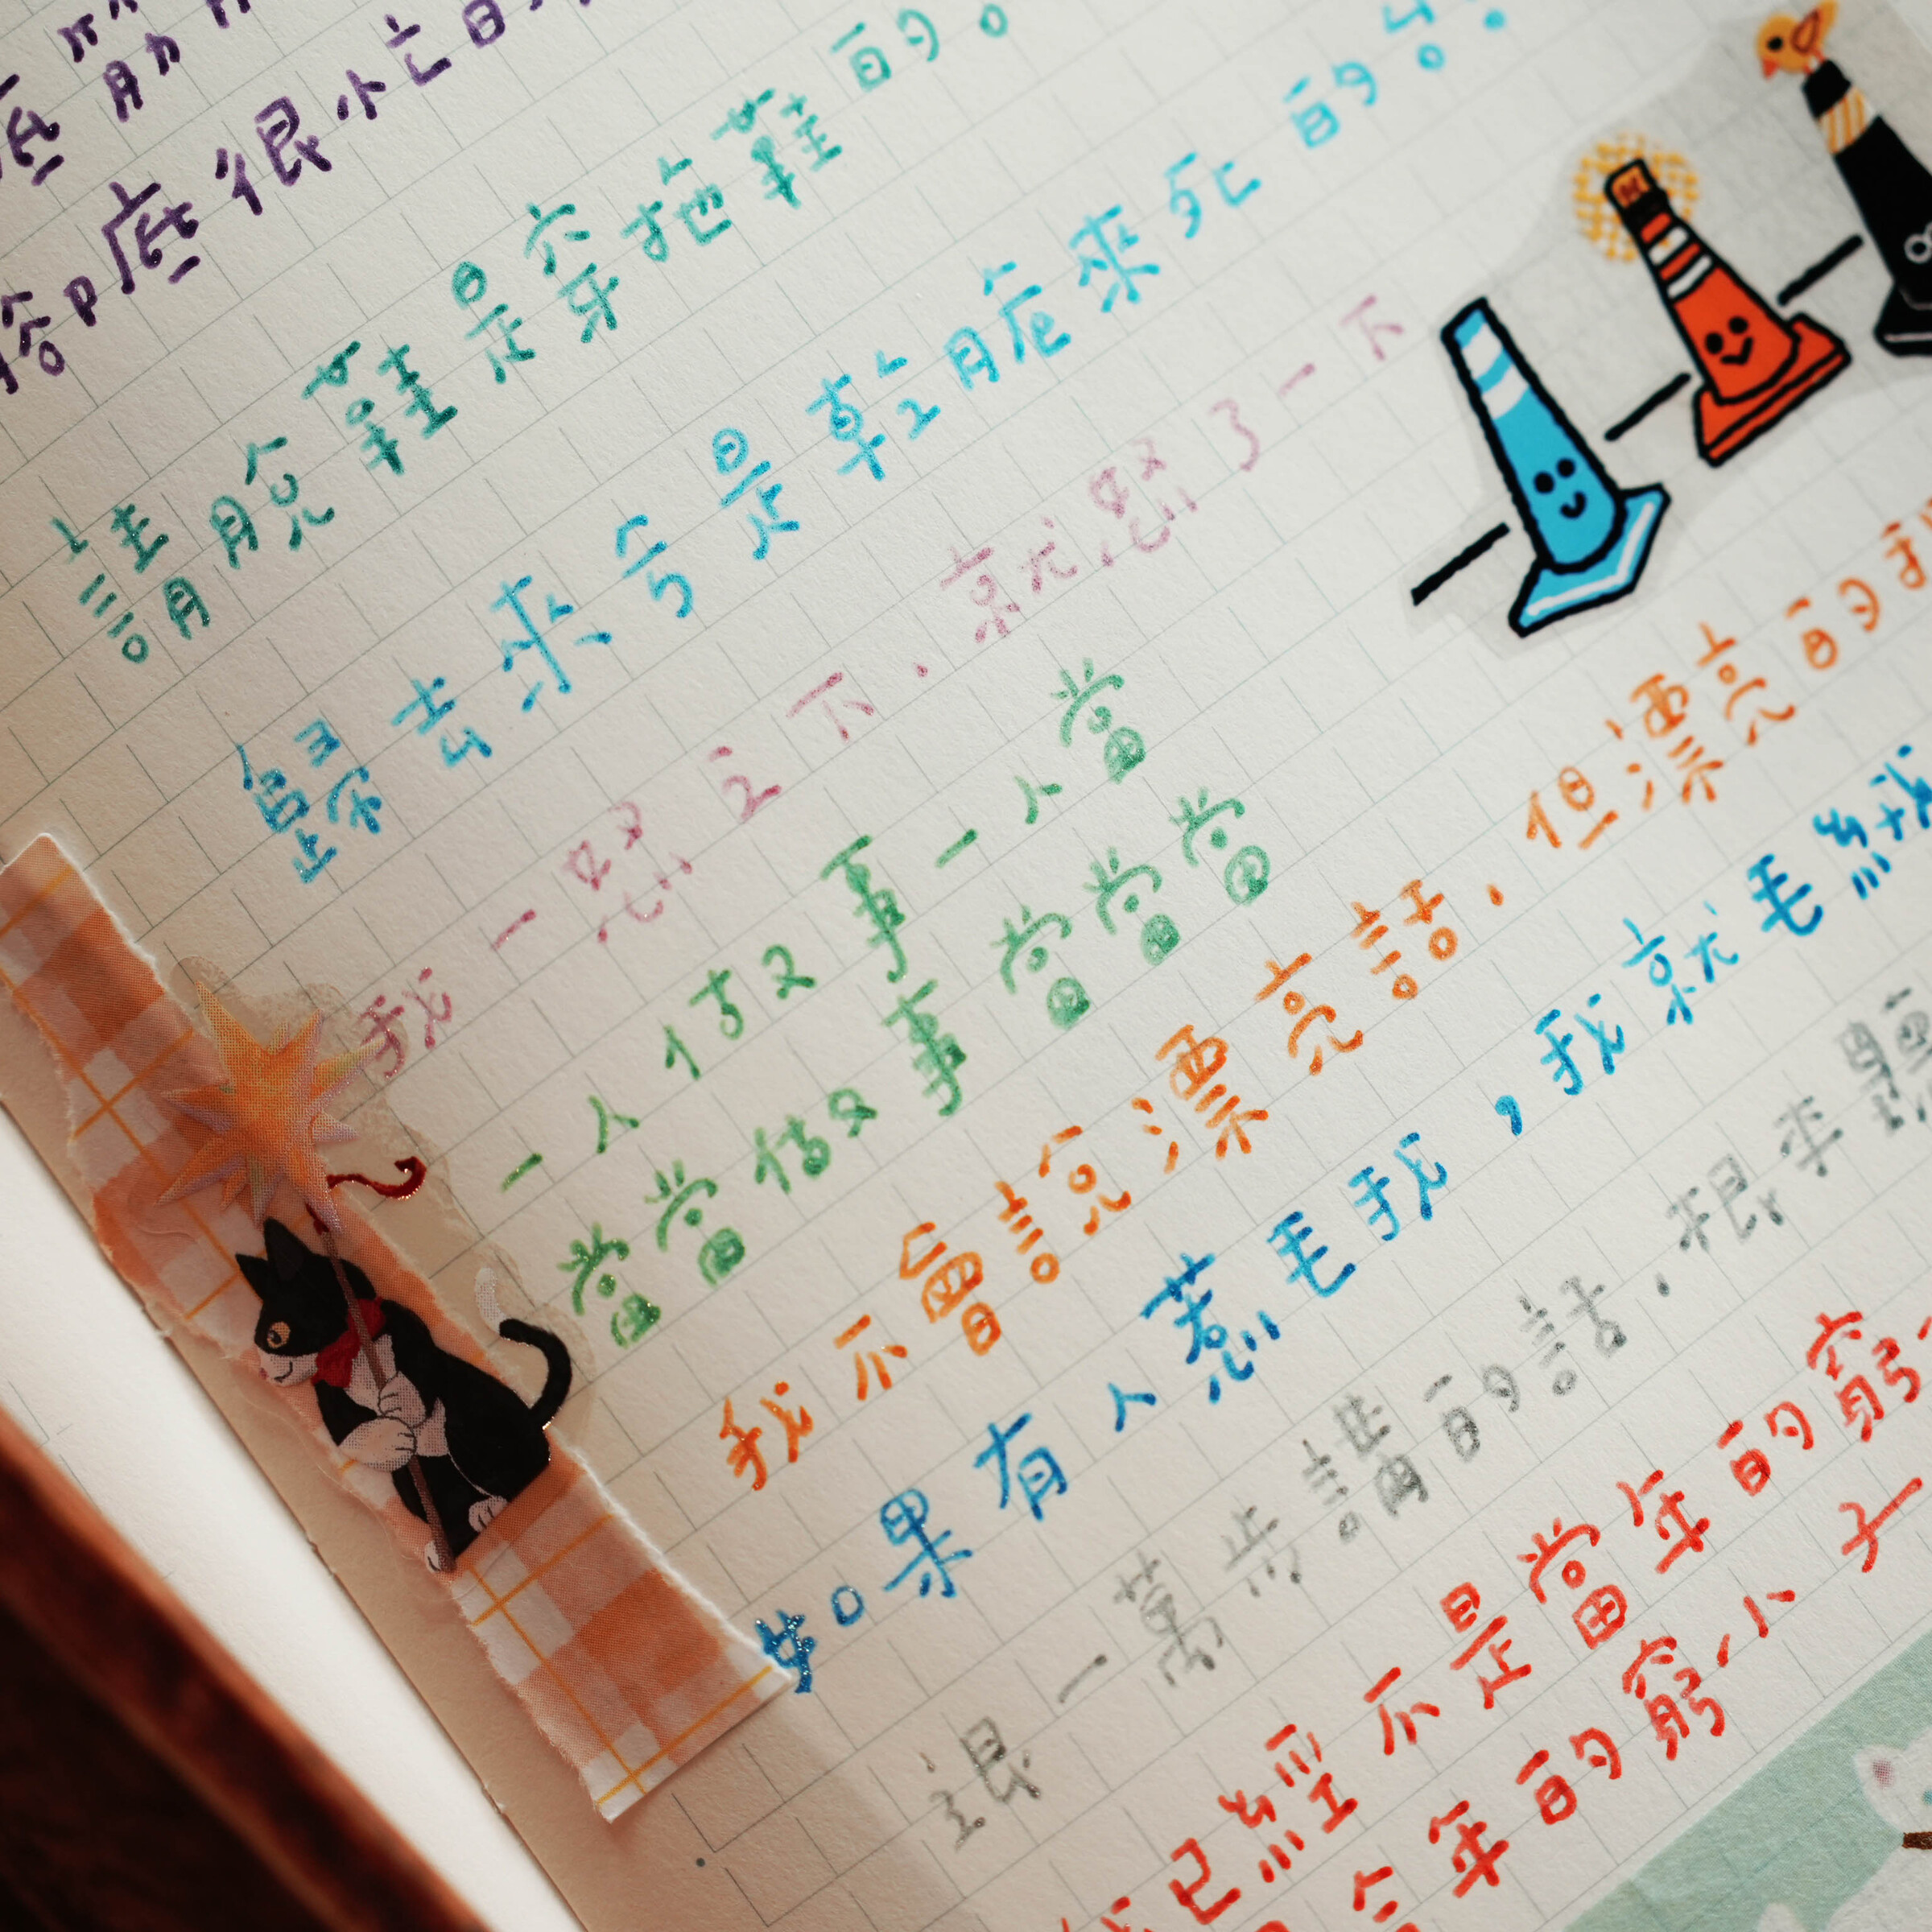 底很忙
請脫鞋是穿拖鞋的。
歸去來兮是乾脆來死的
我一怒之下，就怒了一下
一人做事一人當
當當做事當當當
我不會說漂亮話，但漂亮的
如果有人惹毛我，我就毛
退一萬步講的話，
已經不是當年的窮
今年的窮小子